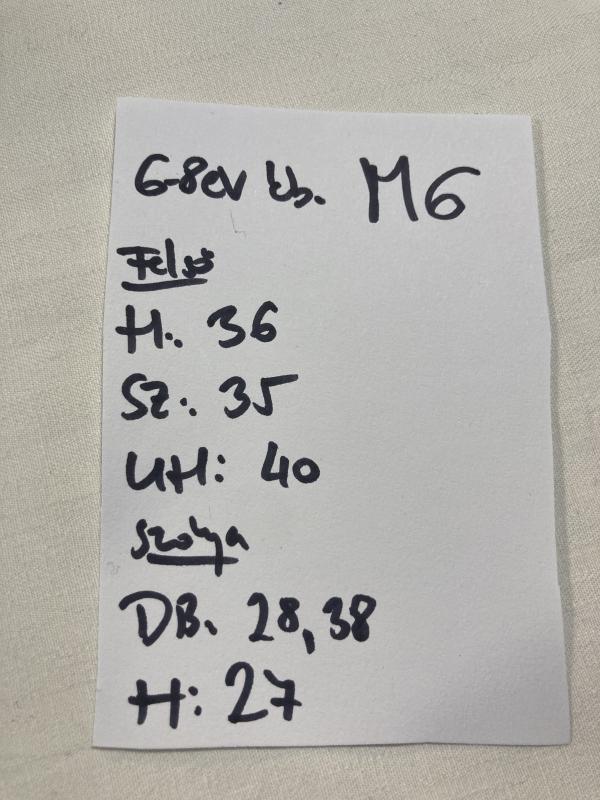 6-8év kb. M6
Felső
H.: 36
SZ.: 35
UH: 40
Szoknya
DB. 28,38
H: 27